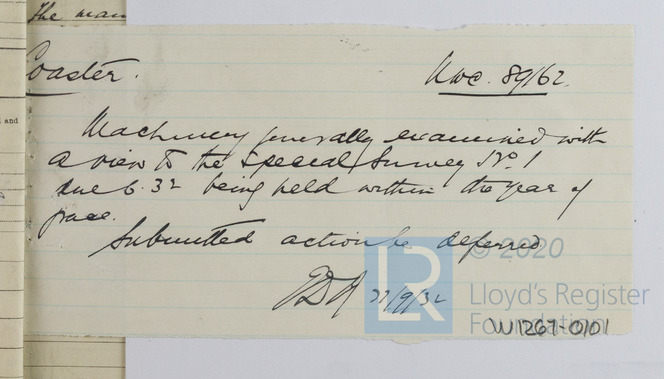 The man
Coaster.
Nwc. 89162.
and
Machinery generally examined with
a view to the Special Survey No. 1
due 6.32 being held within the year of
grace.
Submitted action be deferred
27/9/32
© 2020
LR
Lloyd's Register
Foundation
W1267-0101